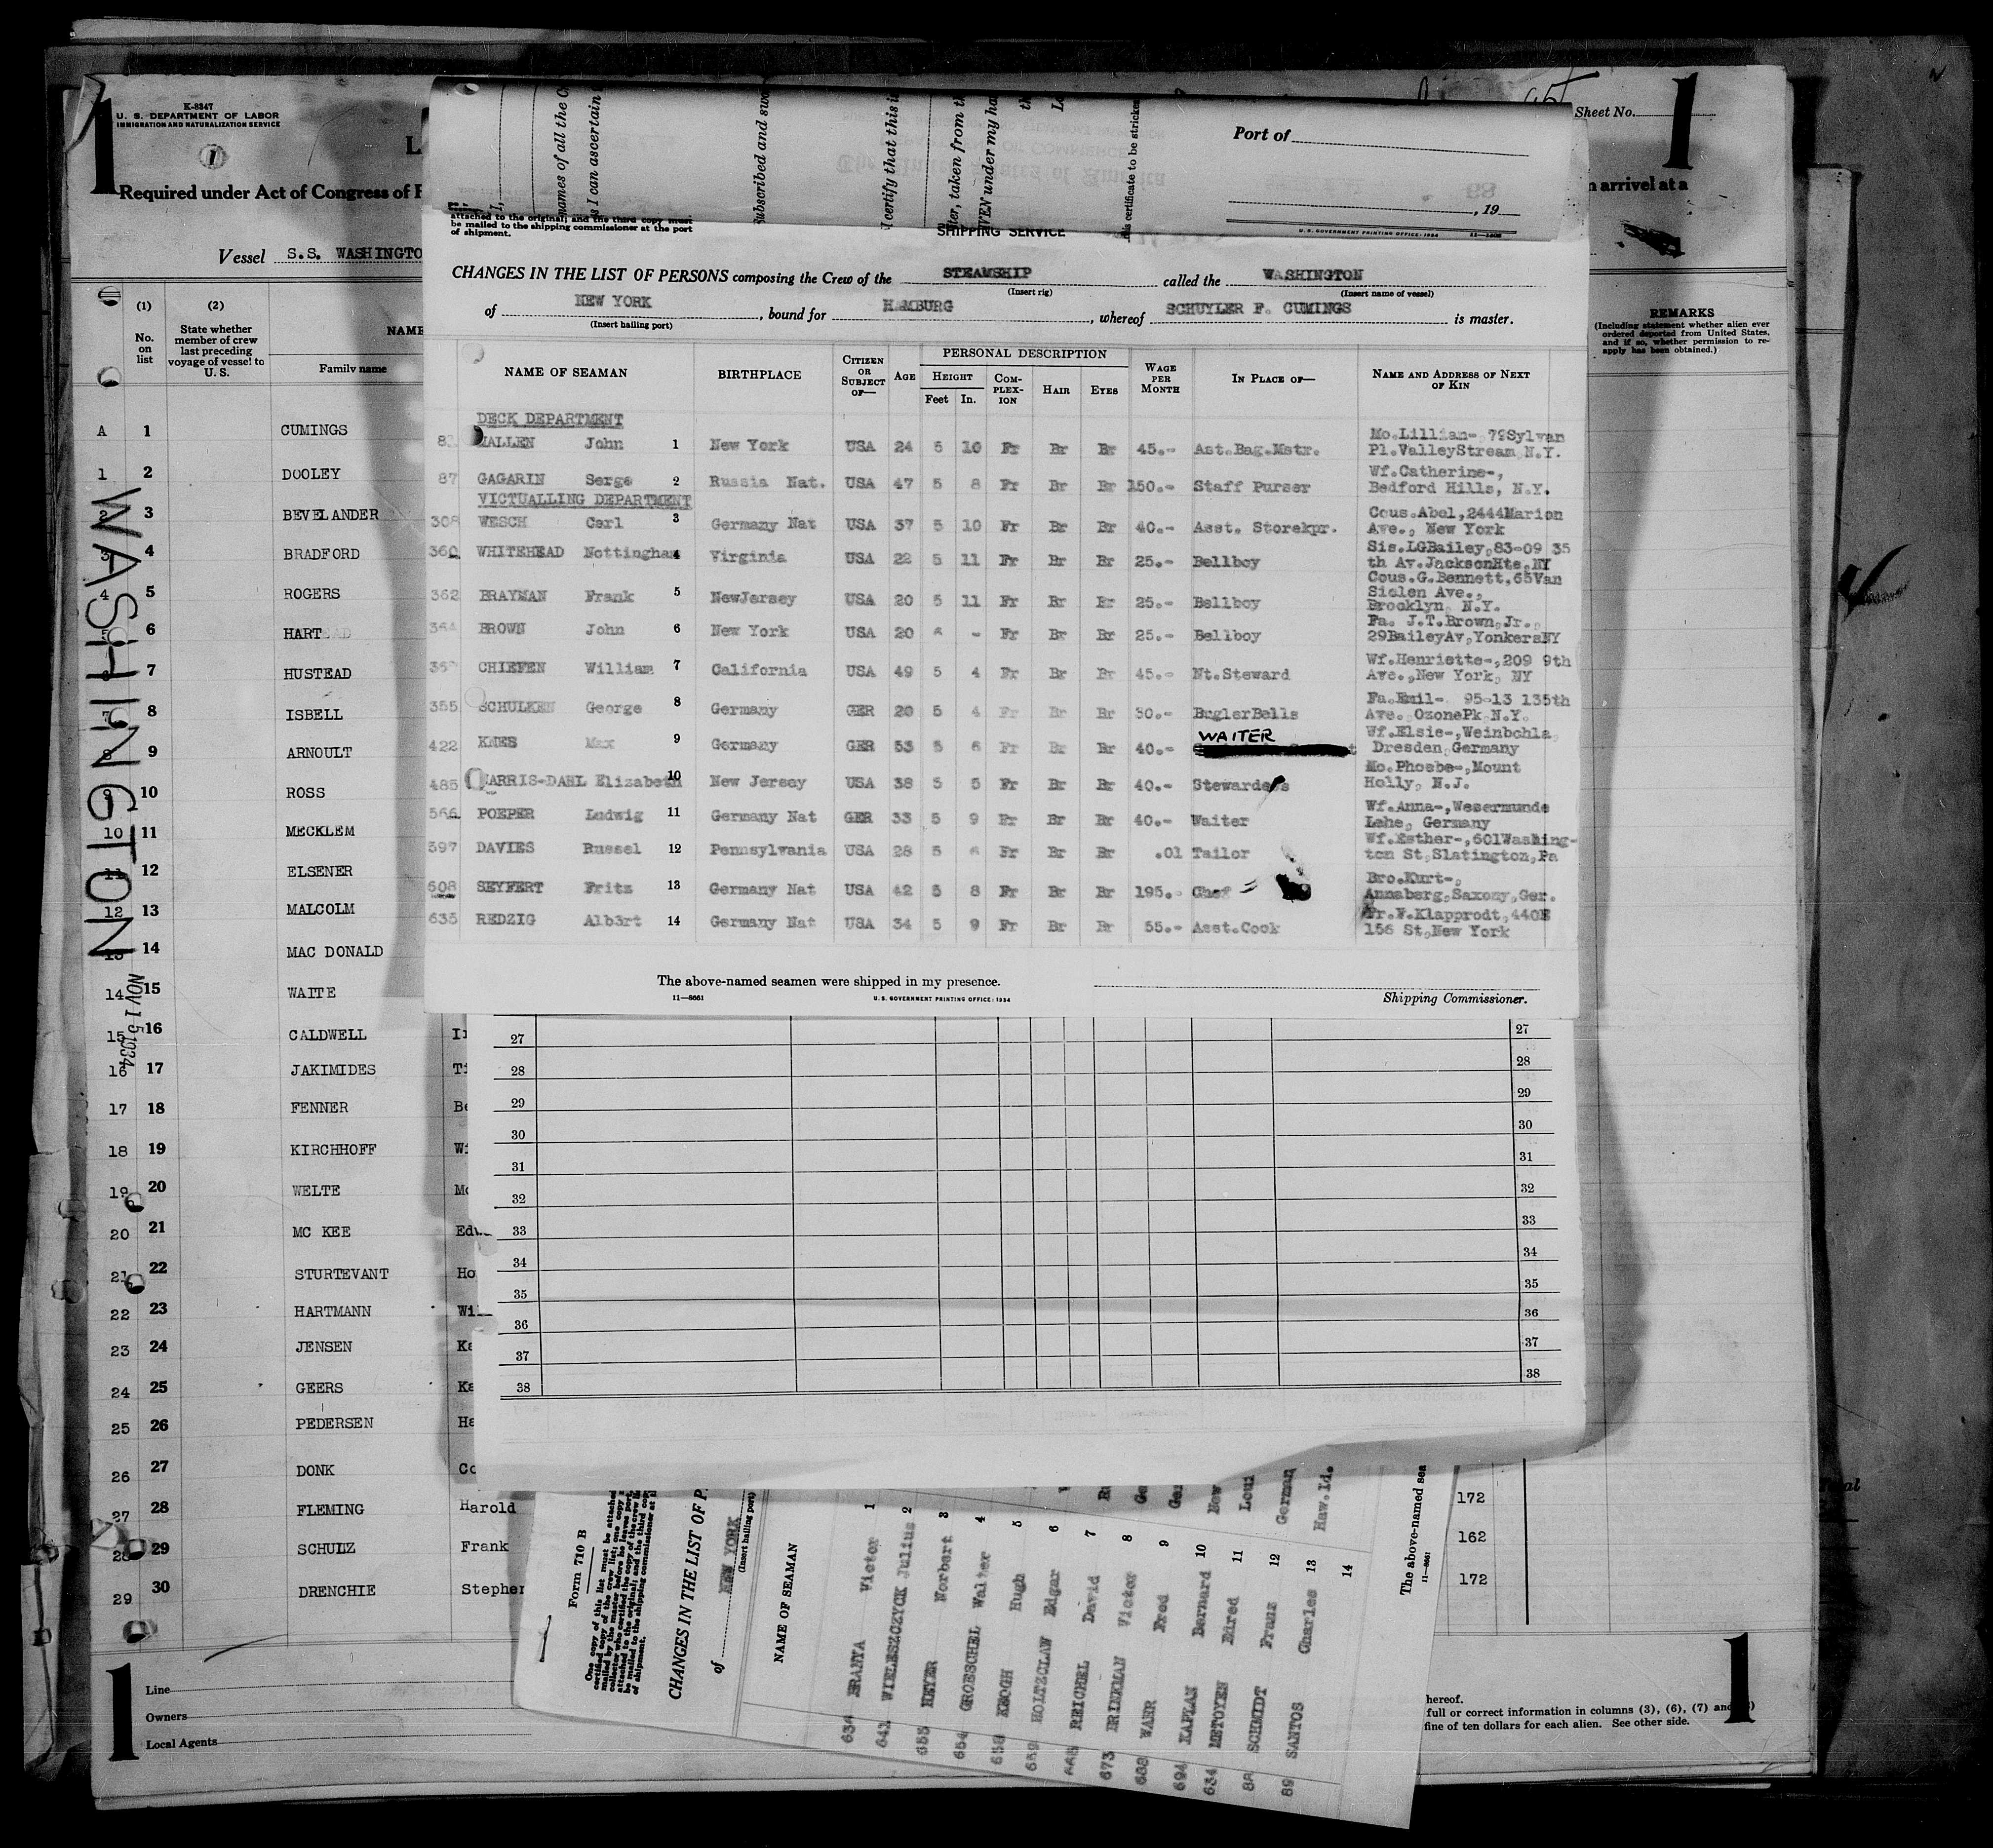 K-8347
U. S. DEPARTMENT OF LABOR
IMMIGRATION AND NATURALIZATION SERVICE
1
1
Sheet No.
Required under Act of Congress of F
n arrival at a
Vessel S.S. WASHINGTO
names of all the C
s I can ascertain
Subscribed and swo
I certify that this is
ter, taken from th
VEN under my ha
is certificate to be stricken
Port of
, 19
U. S. GOVERNMENT PRINTING OFFICE: 1934
attached to the original; and the third copy must
be mailed to the shipping commissioner at the port
of shipment.
SHIPPING SERVICE
CHANGES IN THE LIST OF PERSONS composing the Crew of the STEAMSHIP called the WASHINGTON
(Insert rig) (Insert name of vessel)
of NEW YORK, bound for HAMBURG, whereof SCHUYLER F. CUMINGS is master.
(Insert hailing port)
NAME OF SEAMAN BIRTHPLACE CITIZEN OR SUBJECT OF— AGE PERSONAL DESCRIPTION HEIGHT Feet In. COMPLEXION HAIR EYES WAGE PER MONTH IN PLACE OF— NAME AND ADDRESS OF NEXT OF KIN
DECK DEPARTMENT
John 1 New York USA 24 5 10 Fr Br Br 45.- Ast.Bag.Mstr. Mo.Lillian-, 79Sylvan
Pl.ValleyStream N.Y.
87 GAGARIN Serge 2 Russia Nat. USA 47 5 8 Fr Br Br 150.- Staff Purser Wf.Catherine-,
Bedford Hills, N.Y.
VICTUALLING DEPARTMENT
308 WESCH Carl 3 Germany Nat USA 37 5 10 Fr Br Br 40.- Asst. Storekpr. Cous.Abel,2444Marion
Ave., New York
360 WHITEHEAD Nottingham 4 Virginia USA 22 5 11 Fr Br Br 25.- Bellboy Sis.LGBailey,83-09 35
th Av.JacksonHts,NY
362 BRAYMAN Frank 5 NewJersey USA 20 5 11 Fr Br Br 25.- Bellboy Cous.G.Bennett,65Van
Siclen Ave.,
Brooklyn, N.Y.
364 BROWN John 6 New York USA 20 6 - Fr Br Br 25.- Bellboy Fa. J.T.Brown,Jr.,
29BaileyAv,YonkersNY
CHIEFEN William 7 California USA 49 5 4 Fr Br Br 45.- Nt.Steward Wf.Henriette-,209 9th
Ave.,New York, NY
355 SCHULKEN George 8 Germany GER 20 5 4 Fr Br Br 30.- BuglerBells Fa.Emil-, 95-13 135th
Ave. OzonePk N.Y.
422 KNES Max 9 Germany GER 53 5 6 Fr Br Br 40.- WAITER Wf.Elsie-,Weinbohla
Dresden,Germany
485 HARRIS-DAHL Elizabeth 10 New Jersey USA 38 5 5 Fr Br Br 40.- Stewardess Mo.Phoebe-,Mount
Holly, N.J.
566 POEPER Ludwig 11 Germany Nat GER 33 5 9 Fr Br Br 40.- Waiter Wf.Anna-,Wesermunde
Lehe, Germany
597 DAVIES Russel 12 Pennsylvania USA 28 5 6 Fr Br Br .01 Tailor Wf.Esther-,601Washing-
ton St,Slatington,Pa
608 SEYFERT Fritz 13 Germany Nat USA 42 5 8 Fr Br Br 195.- Chef Bro.Kurt-,
Annaberg,Saxony,Ger.
635 REDZIG Alb3rt 14 Germany Nat USA 34 5 9 Fr Br Br 55.- Asst.Cook Fr.F.Klapprodt,440E
156 St,New York
The above-named seamen were shipped in my presence.
11—8661 U. S. GOVERNMENT PRINTING OFFICE: 1934 Shipping Commissioner.
(1) (2)
No. on list
State whether member of crew last preceding voyage of vessel to U. S.
NAME
Family name
REMARKS
(Including statement whether alien ever
ordered deported from United States,
and if so, whether permission to re-
apply has been obtained.)
A 1 CUMINGS
1 2 DOOLEY
2 3 BEVELANDER
3 4 BRADFORD
4 5 ROGERS
5 6 HART
6 7 HUSTEAD
7 8 ISBELL
8 9 ARNOULT
9 10 ROSS
10 11 MECKLEM
11 12 ELSENER
12 13 MALCOLM
13 14 MAC DONALD
14 15 WAITE
15 16 CALDWELL
16 17 JAKIMIDES
17 18 FENNER
18 19 KIRCHHOFF
19 20 WELTE
20 21 MC KEE
21 22 STURTEVANT
22 23 HARTMANN
23 24 JENSEN
24 25 GEERS
25 26 PEDERSEN
26 27 DONK
27 28 FLEMING Harold
28 29 SCHULZ Frank
29 30 DRENCHIE Stephen
WASHINGTON
NOV 15 1934
27 27
28 28
29 29
30 30
31 31
32 32
33 33
34 34
35 35
36 36
37 37
38 38
172
162
172
Form 710 B
One copy of this list must be attached
CHANGES IN THE LIST OF P
of NEW YORK
(Insert hailing port)
NAME OF SEAMAN
636 BRANYA Victor 1
641 WIELESZCZYCK Julius 2
655 MEYER Norbert 3
654 GROESCHEL Walter 4
658 KEOGH Hugh 5
659 HOLTZCLAW Edgar 6
665 REICHEL David 7
673 BRINKMAN Victor 8
688 WARR Fred 9
694 KAPLAN Bernard 10
634 METOYEN Edred 11
88 SCHMIDT Franz 12 German
89 SANTOS Charles 13 Haw.Id.
14
The above-named sea
11—8661
Line
Owners
Local Agents
hereof.
full or correct information in columns (3), (6), (7) and
fine of ten dollars for each alien. See other side.
1
1